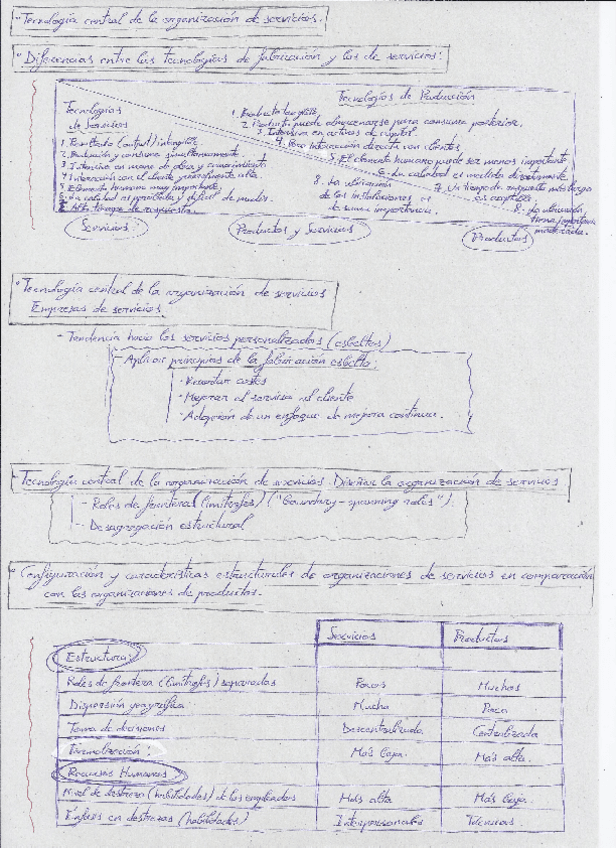 "Tecnología central de la organización de servicios.
"Diferencias entre las tecnologías de fabricación y las de servicios:
Tecnologías de Producción
Tecnologías
de Servicios
1. Producto tangible
2. Producto puede almacenarse para consumo posterior.
3. Intensiva en activos de capital.
4. Poca interacción directa con clientes
5. El elemento humano puede ser menos importante
6. La calidad es medida directamente
7. Un tiempo de respuesta más largo
es aceptable
8. La ubicación,
moderada.
1. Resultado (output) intangible
2. Producción y consumo simultáneamente
3. Intensiva en mano de obra y conocimiento
4. Interacción con el cliente generalmente alta.
5. Elemento humano muy importante
6. La calidad es percibida y difícil de medir.
8. La ubicación
de las instalaciones es
de suma importancia.
Servicios
Productos y Servicios
Productos
"Tecnología central de la organización de servicios
Empresas de servicios
- Tendencia hacia los servicios personalizados (esbeltos)
- Aplicar principios de la fabricación esbelta:
· Recortar costos
· Mejorar el servicio al cliente
· Adopción de un enfoque de mejora continua.
- Tecnología central de la organización de servicios. Diseñar la organización de servicios
- Roles de fronteras (limítrofes) ("Boundary-spanning roles").
- Desagregación estructural
" Configuración y características estructurales de organizaciones de servicios en comparación
con las organizaciones de productos.
Servicios Productos
Estructura:
Roles de frontera (limítrofes) separados Pocos Muchos
Dispersión geográfica Mucha Poca
Toma de decisiones Descentralizada Centralizada
Formalización: Más baja. Más alta.
Recursos Humanos
Nivel de destreza (habilidades) de los empleados Más alta Más baja.
Énfasis en destrezas (habilidades) Interpersonales Técnicas.